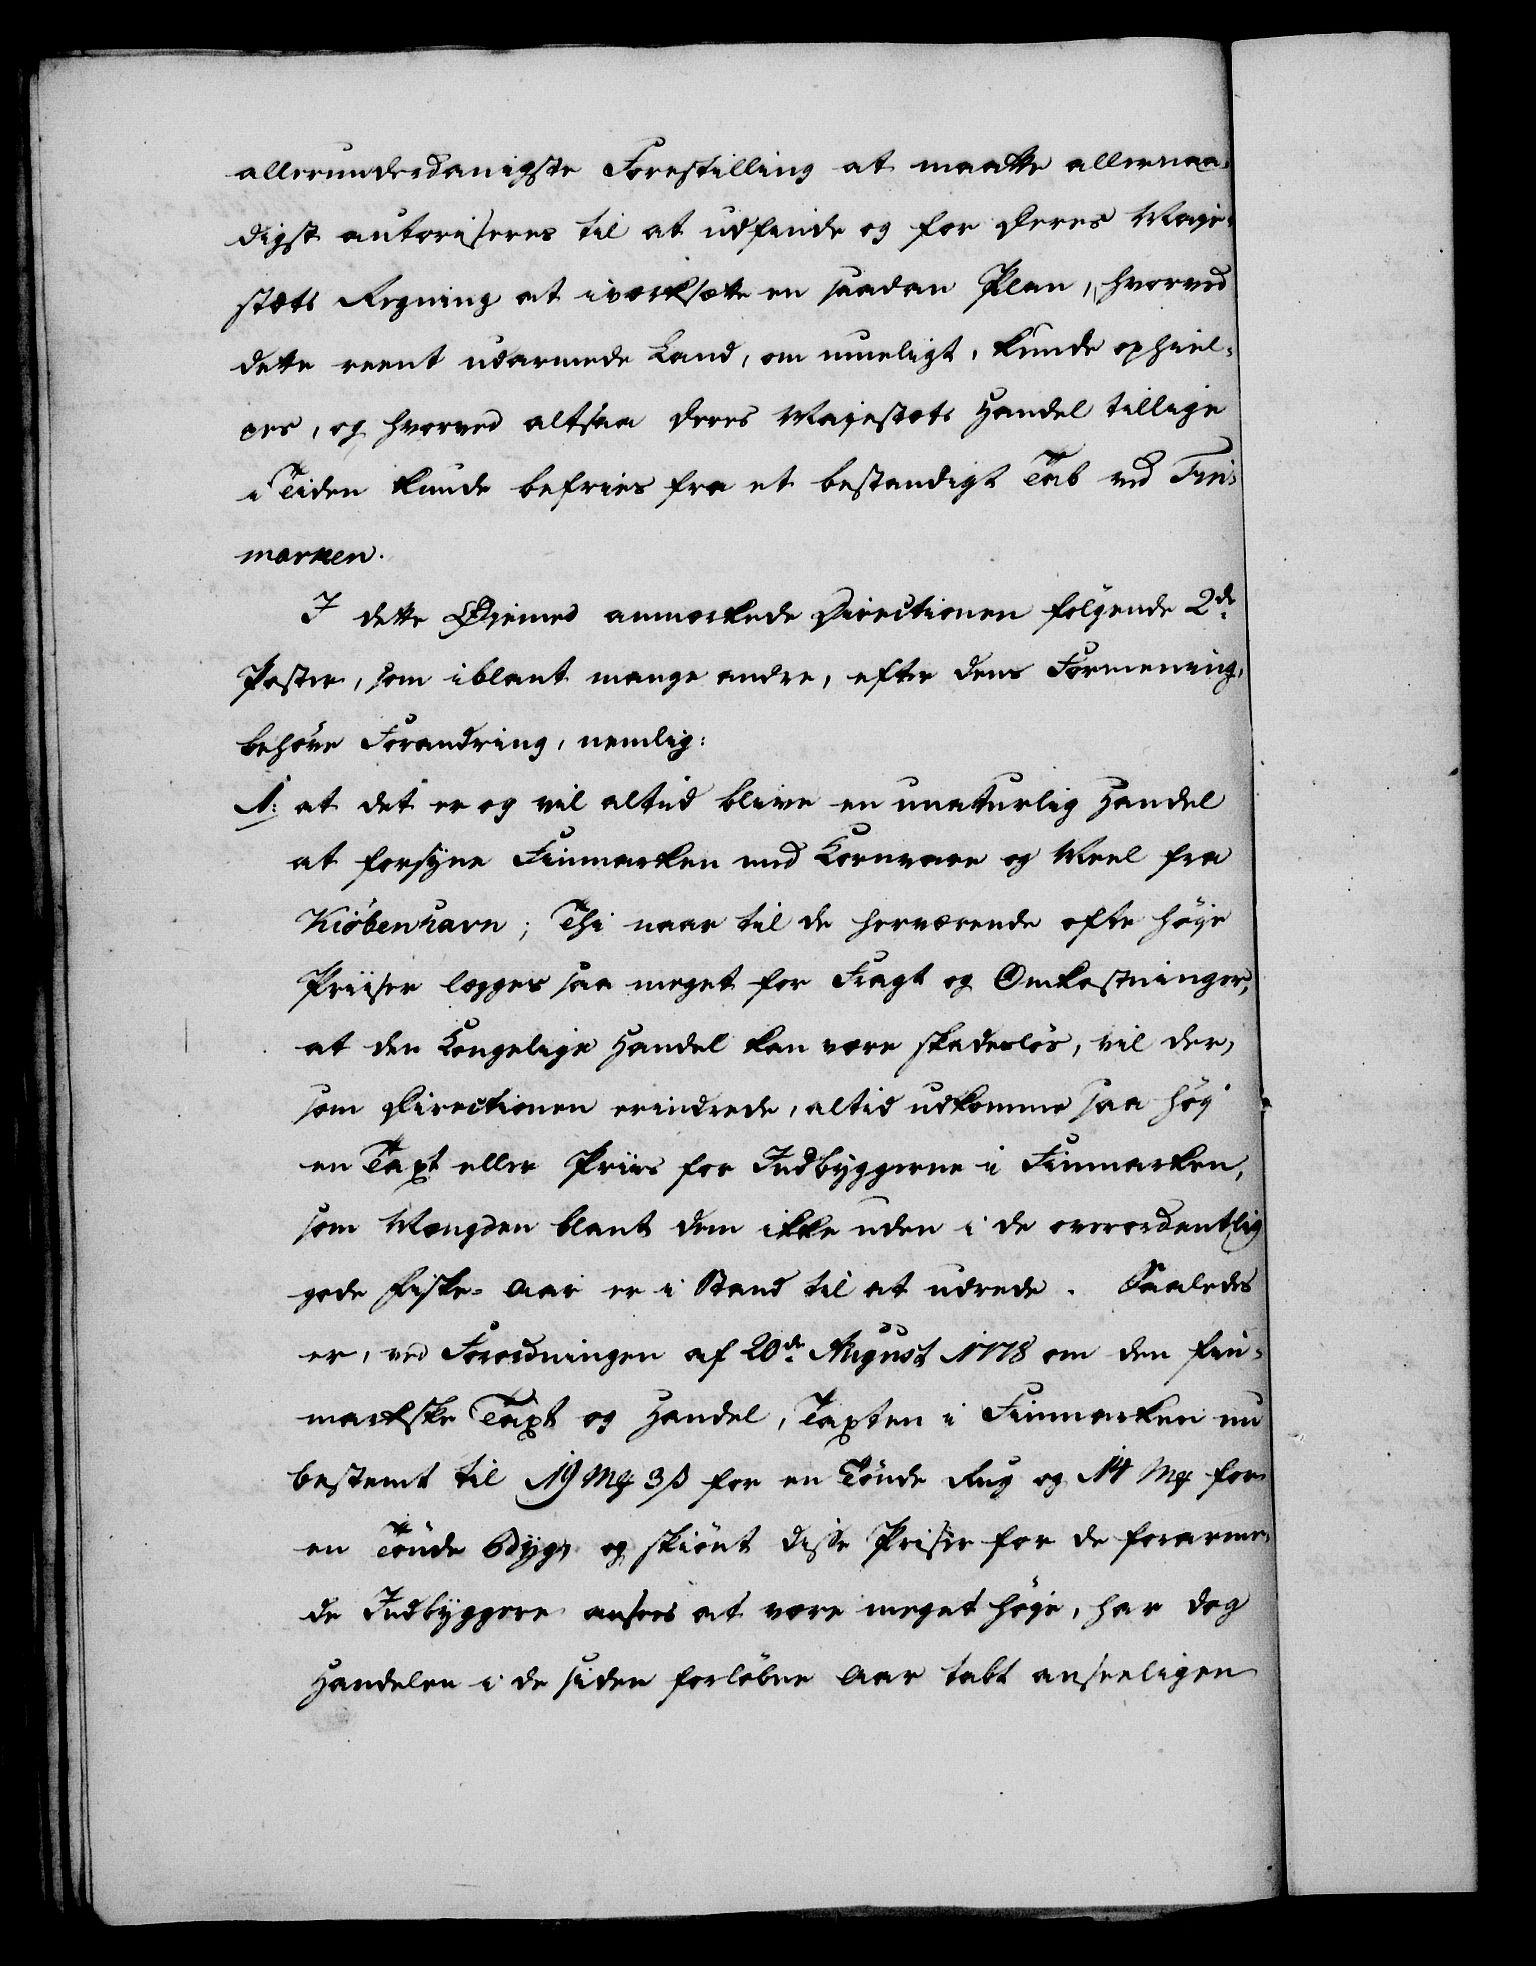 allerunderdanigste Forestilling at maatte allernaa-
digst autoriseres til at udfinde og for Deres Maje-
stæts Regning at iværksætte en saadan Plan, hvorved
dette reent udarmede Land, om mueligt, kunde ophiel-
pes, og hvorved altsaa Deres Majestæts Handel tillige
i Tiden kunde befries fra et bestandigt Tab ved Fin-
marken.
I dette Øiemed anmærkede Directionen følgende 2de
Poster, som iblant mange andre, efter dens Formening,
behøve Forandring, nemlig:
1: at det er og vil altid blive en unaturlig Handel
at forsyne Finmarken med Kornvare og Meel fra
Kiöbenhavn; Thi naar til de herværende ofte høye
Priiser lægges saa meget for Fragt og Omkostninger,
at den Kongelige Handel kan være skadesløs, vil der,
som Directionen erindrede, altid udkomme saa høy
en Taxt eller Priis for Indbyggerne i Finmarken,
som Mængden blant dem ikke uden i de overordentlig
gode Fiske-Aar er i Stand til at udrede. Saaledes
er, ved Forordningen af 20de August 1778 om den fin-
markske Taxt og Handel, Taxten i Finmarken nu
bestemt til 19 Mk 3 ß for en Tønde Rug og 14 Mk for
en Tønde Byg, og skiönt disse Priser for de forarme-
de Indbyggere ansees at være meget høje, har dog
Handelen i de siden forløbne Aar tabt anseeligen